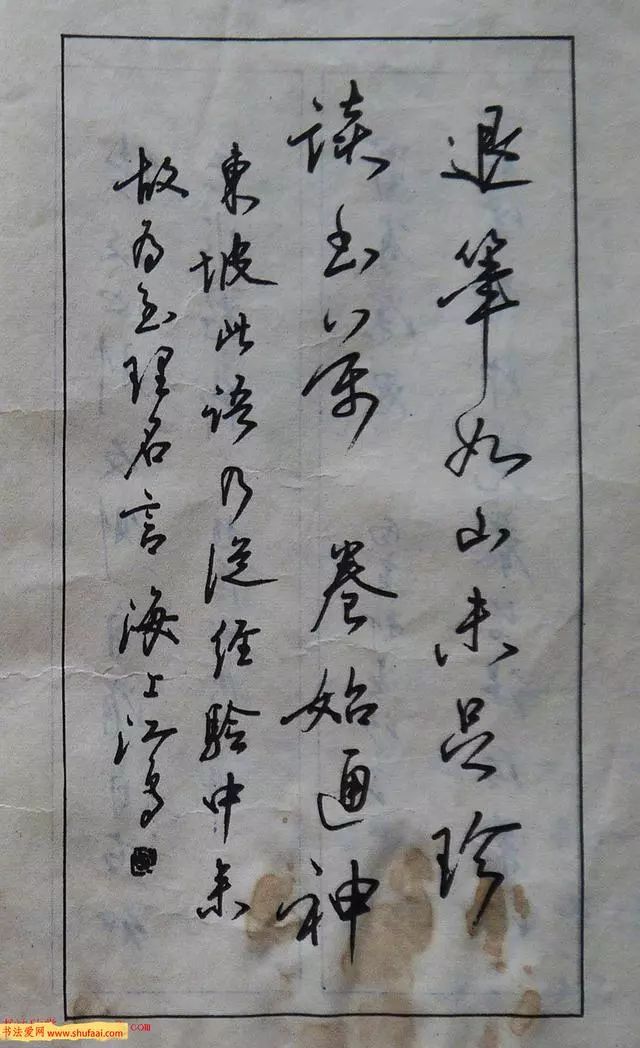 退筆如山未足珍
读书万卷始通神
東坡此语乃從经验中来
故为至理名言 海上江鸟
书法爱网 www.shufaai.com